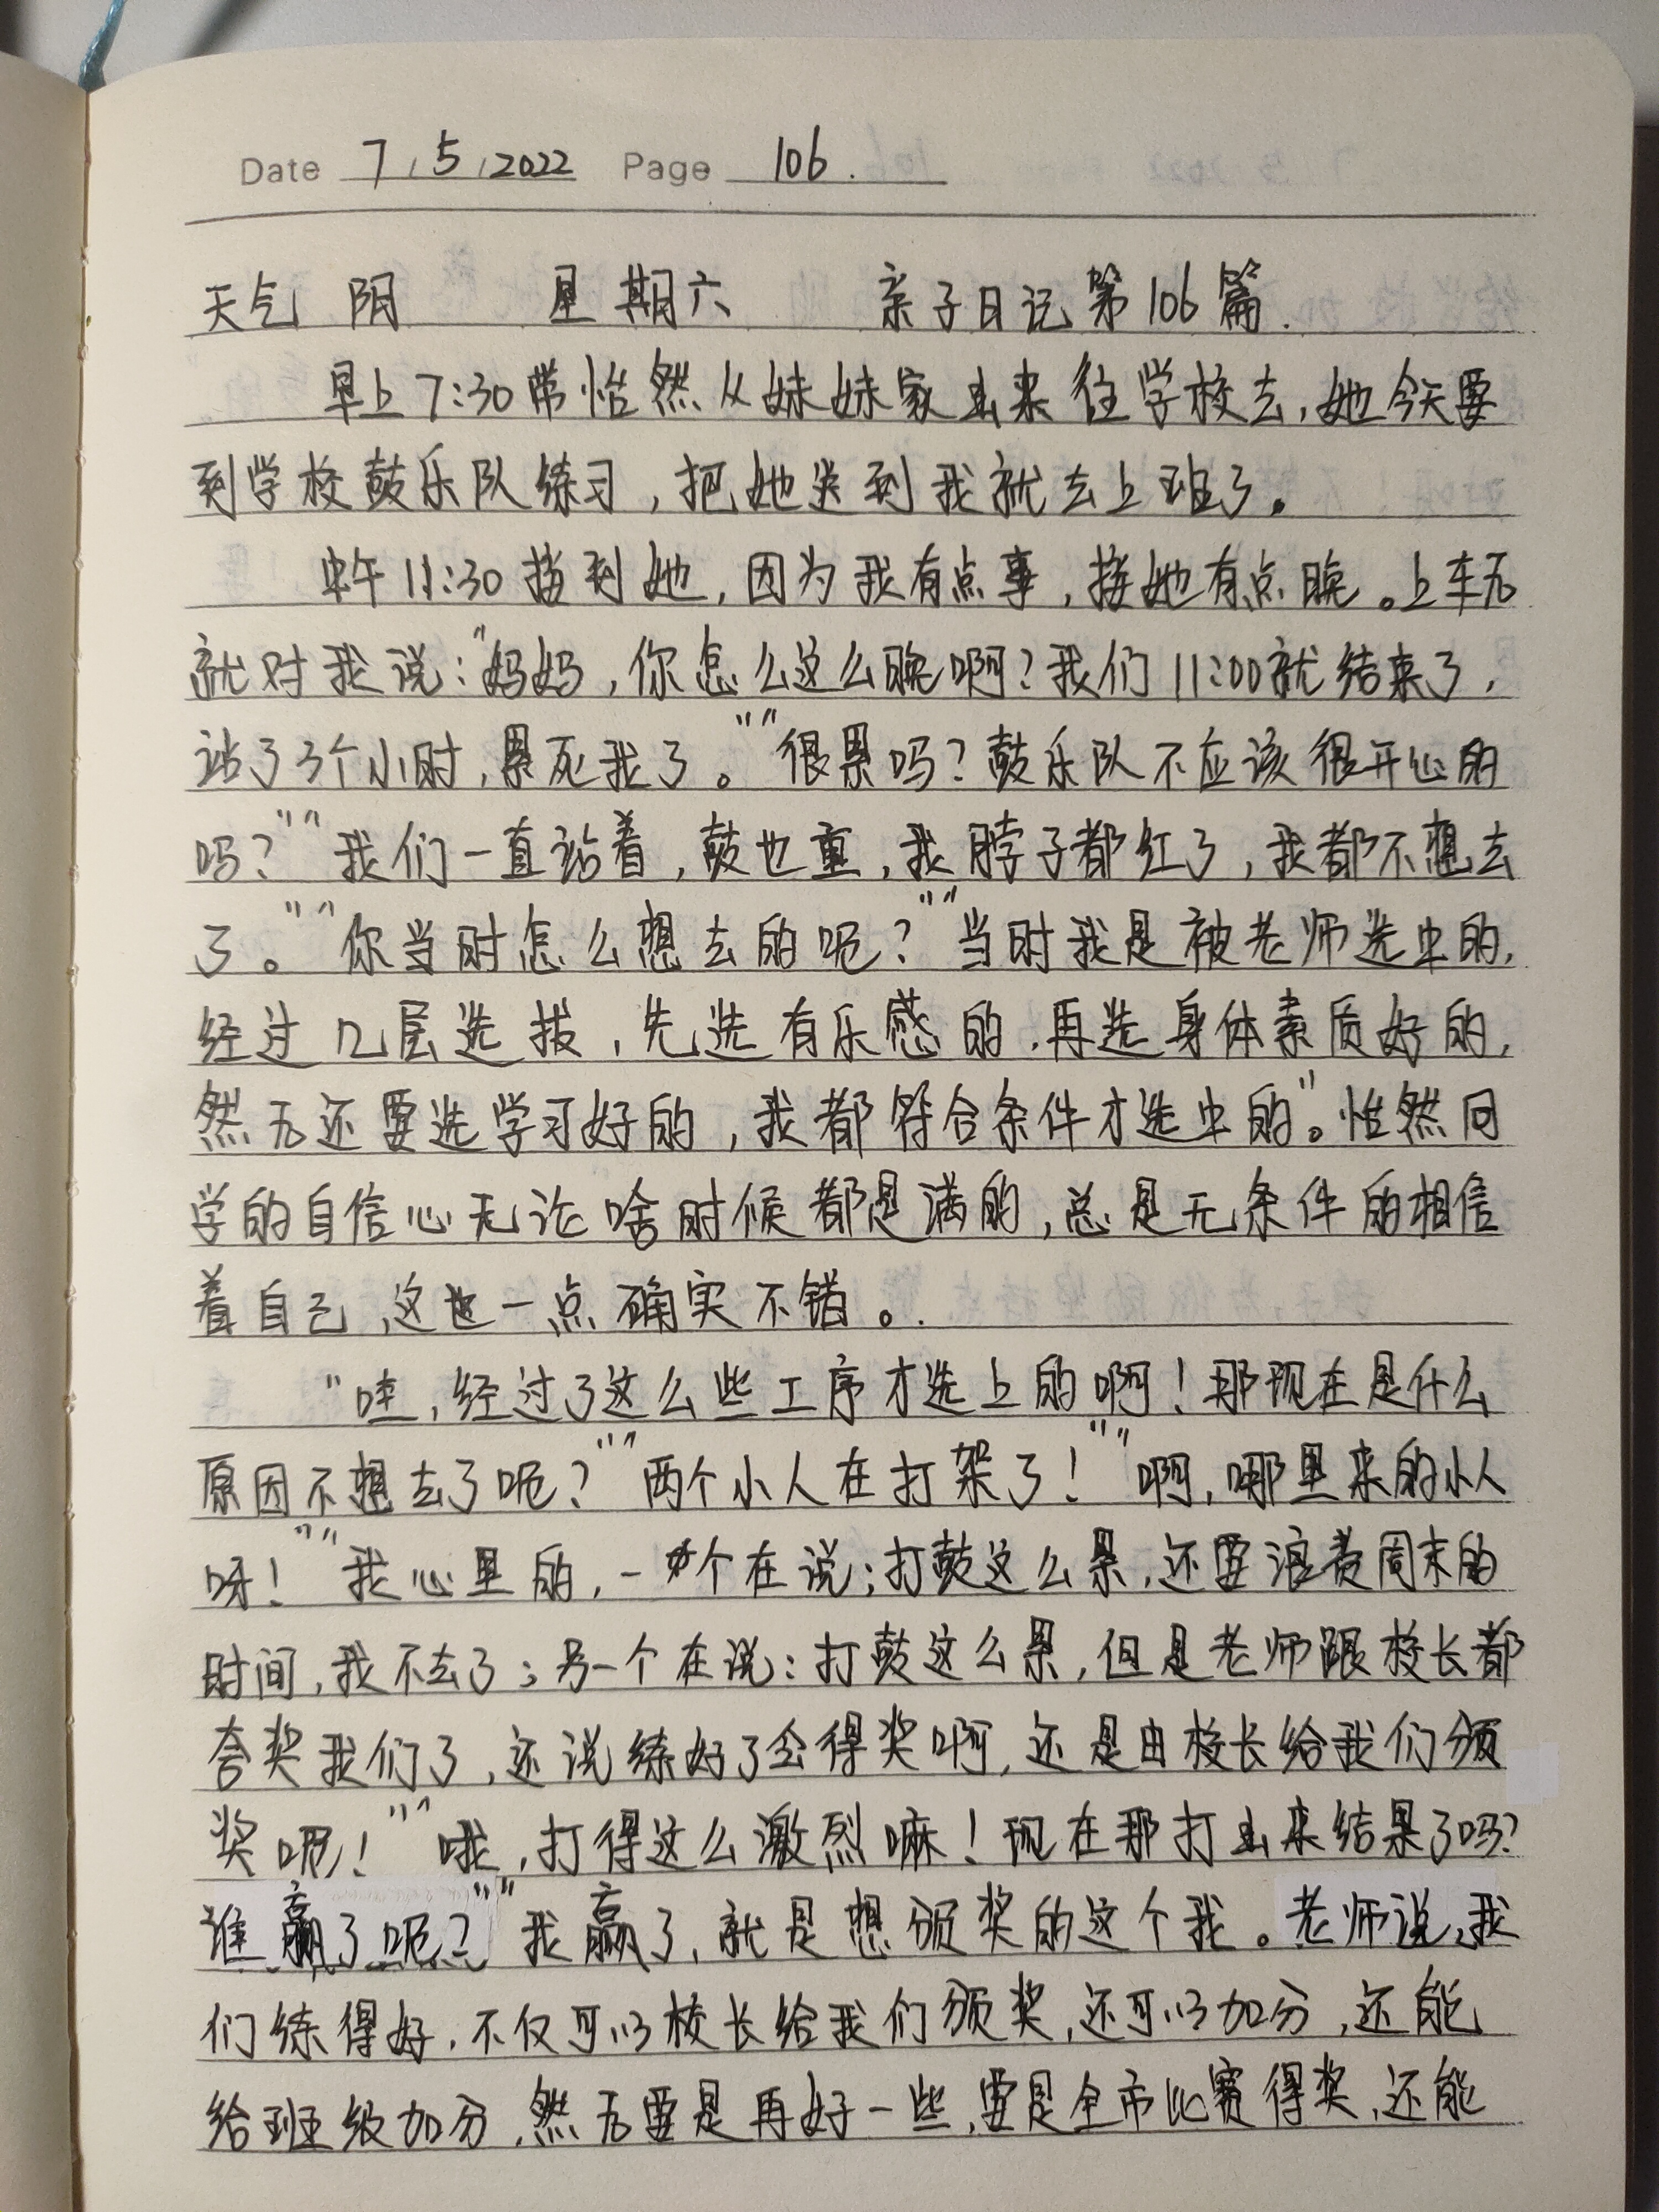 Date 7/5/2022 Page 106.
天气 阴 星期六 亲子日记第106篇.
早上7:30带怡然从妹妹家出来往学校去,她今天要
到学校鼓乐队练习,把她送到我就去上班了。
中午11:30接到她,因为我有点事,接她有点晚。上车后
就对我说:"妈妈,你怎么这么晚啊?我们11:00就结束了,
站了3个小时,累死我了。""很累吗?鼓乐队不应该很开心的
吗?""我们一直站着,鼓也重,我脖子都红了,我都不想去
了。""你当时怎么想去的呢?""当时我是被老师选中的,
经过几层选拔,先选有乐感的,再选身体素质好的,
然后还要选学习好的,我都符合条件才选中的"。怡然同
学的自信心无论啥时候都是满的,总是无条件的相信
着自己,这也一点确实不错。.
"哇,经过了这么些工序才选上的啊!那现在是什么
原因不想去了呢?""两个小人在打架了!""啊,哪里来的小人
呀!""我心里的,一个在说;打鼓这么累,还要浪费周末的
时间,我不去了;另一个在说:打鼓这么累,但是老师跟校长都
夸奖我们了,还说练好了会得奖啊,还是由校长给我们颁
奖呢!""哦,打得这么激烈嘛!现在那打出来结果了吗?
谁赢了呢?""我赢了,就是想颁奖的这个我。老师说,我
们练得好,不仅可以校长给我们颁奖,还可以加分,还能
给班级加分,然后要是再好一些,要是全市比赛得奖,还能